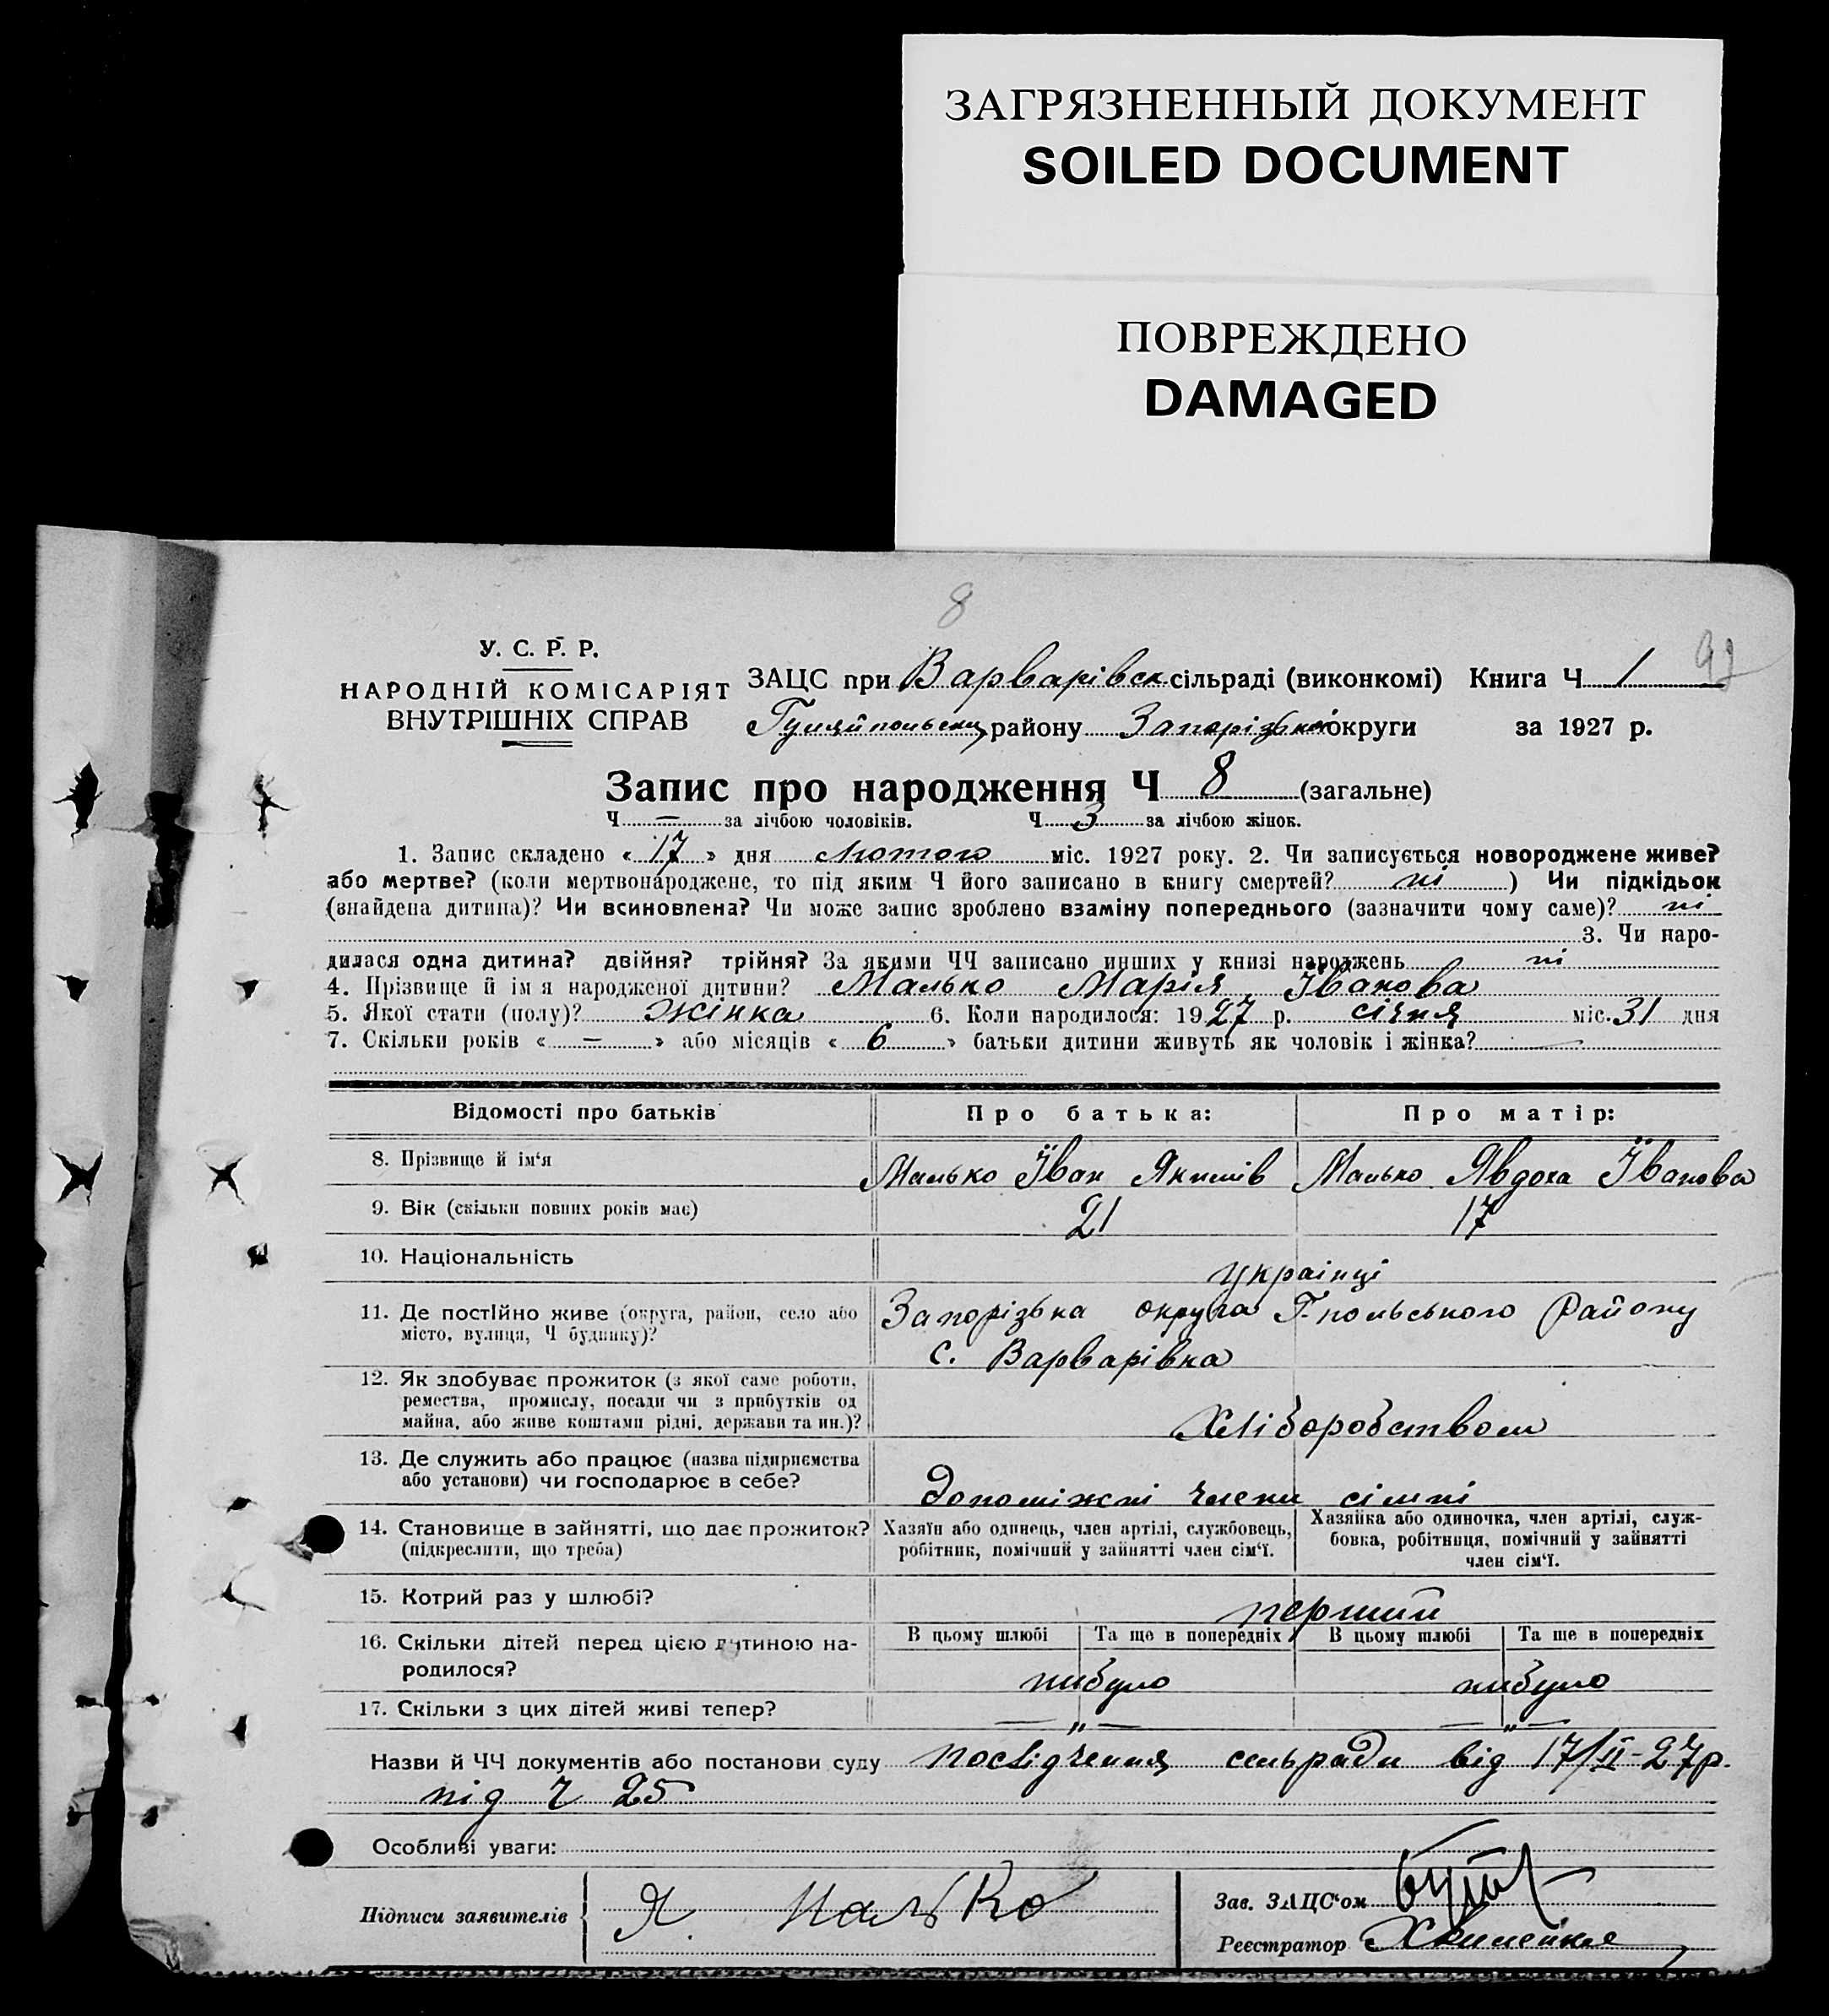 ЗАГРЯЗНЕННЫЙ ДОКУМЕНТ
SOILED DOCUMENT
ПОВРЕЖДЕНО
DAMAGED
8
У. С. Р. Р.
НАРОДНІЙ КОМІСАРІЯТ
ВНУТРІШНІХ СПРАВ
ЗАЦС при Варварівск сільраді (виконкомі) Книга Ч 1
Гуляйпольськ району Запорізької округи за 1927 р.
Запис про народження Ч 8 (загальне)
Ч — за лічбою чоловіків. Ч 3 за лічбою жінок.
1. Запис складено « 17 » дня лютого міс. 1927 року. 2. Чи записується новороджене живе?
або мертве? (коли мертвонароджене, то під яким Ч його записано в книгу смертей? ні ) Чи підкідьок
(знайдена дитина)? Чи всиновлена? Чи може запис зроблено взаміну попереднього (зазначити чому саме)? ні
3. Чи наро-
дилася одна дитина? двійня? трійня? За якими ЧЧ записано инших у книзі народжень ні
4. Прізвище й ім я народженої дитини? Малько Марія Іванова
5. Якої стати (полу)? жінка 6. Коли народилося: 1927 р. січня міс. 31 дня
7. Скільки років « — » або місяців « 6 » батьки дитини живуть як чоловік і жінка? —
Відомості про батьків Про батька: Про матір:
8. Прізвище й ім‘я Малько Їван Якимів Малько Явдоха Їванова
9. Вік (скільки повних років має) 21 17
10. Національність українці
11. Де постійно живе (округа, район, село або Запорізька округа Г-польського Району
місто, вулиця, Ч будинку)? с. Варварівка
12. Як здобуває прожиток (з якої саме роботи,
ремества, промислу, посади чи з прибутків од
майна, або живе коштами рідні, держави та ин.)? Хліборобством
13. Де служить або працює (назва підприємства
або установи) чи господарює в себе? Допоміжні члени сімні
14. Становище в зайнятті, що дає прожиток? Хазяїн або одинець, член артілі, службовець, Хазяйка або одиночка, член артілі, служ-
(підкреслити, що треба) робітник, помічний у зайнятті член сім‘ї. бовка, робітниця, помічний у зайнятті
член сім‘ї.
15. Котрий раз у шлюбі? перший
16. Скільки дітей перед цією дитиною на- В цьому шлюбі Та ще в попередніх В цьому шлюбі Та ще в попередніх
родилося? нибуло нибуло
17. Скільки з цих дітей живі тепер? — „ — — „ —
Назви й ЧЧ документів або постанови суду посвідчення сельради від 17/II-27р.
під Ч 25
Особливі уваги:
Підписи заявителів Я. Малько
Зав. ЗАЦС‘ом
Реєстратор